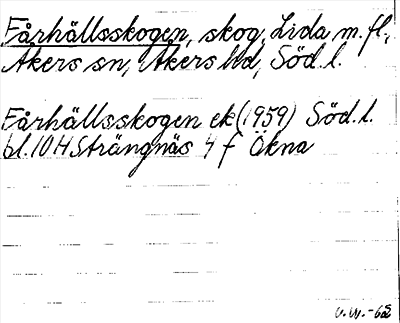 Fårhällsskogen, skog, Lida m. fl.,
Åkers sn, Åkers hd, Söd. l.
Fårhällsskogen ek (1959) Söd. l.
bl. 10 H Strängnäs 4 f Ökna